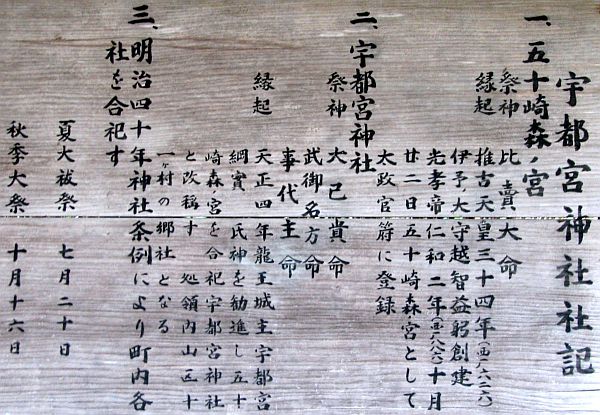 宇都宮神社社記
一、五十崎森ノ宮
祭神 比賣大命
縁起 推古天皇三十四年(西六二六)
伊予ノ大守越智益躬創建
光孝帝仁和二年(西八八六)十月
廿二日五十崎森宮として
太政官符に登録
二、宇都宮神社
祭神 大己貴命
武御名方命
事代主命
縁起 天正四年龍王城主宇都宮
綱實 氏神を勧進し五十
崎森ノ宮を合祀宇都宮神社
と改稱す 処領内山五十
一ヶ村の郷社となる
三、明治四十年神社条例により町内各
社を合祀す
夏大祓祭 七月二十日
秋季大祭 十月十六日